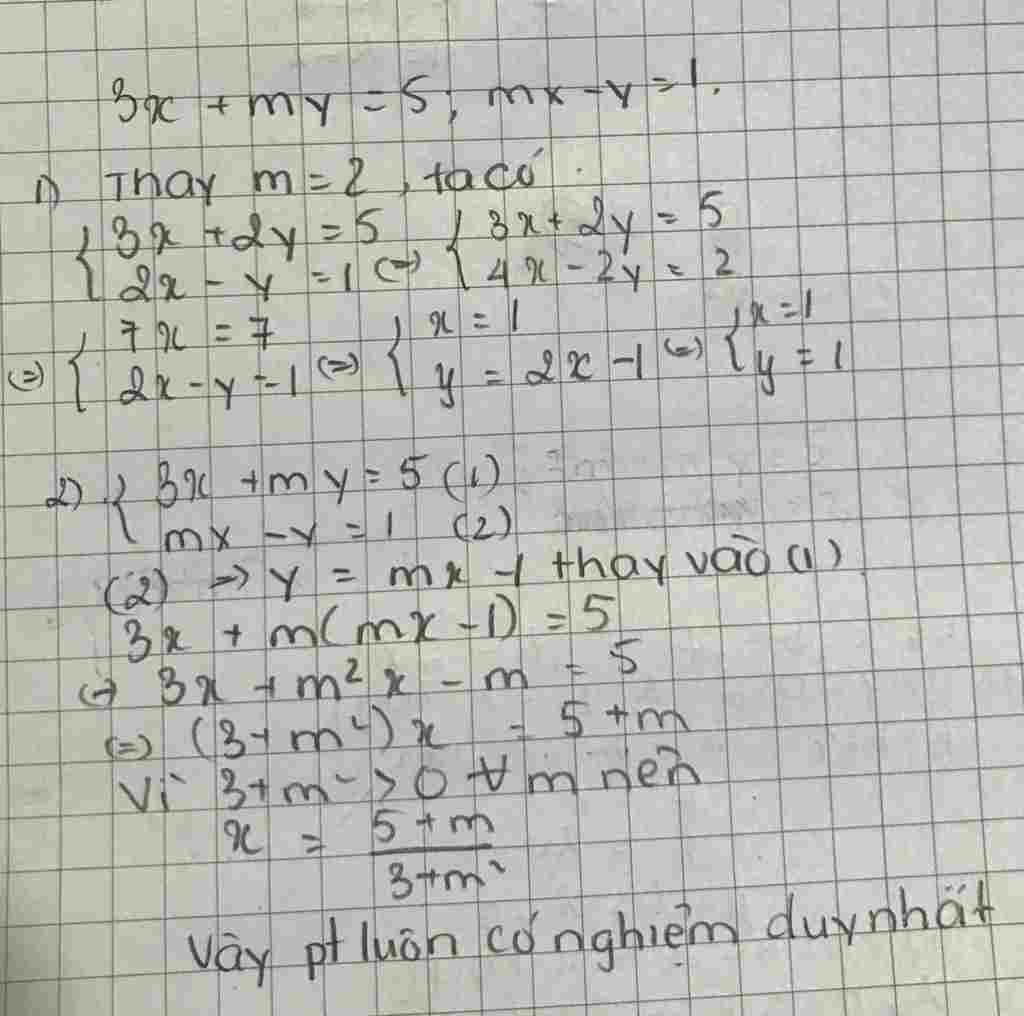 3x + my = 5; mx - y = 1.
1) Thay m = 2, ta có.
{ 3x + 2y = 5 (=) { 3x + 2y = 5
2x - y = 1 4x - 2y = 2
(=) { 7x = 7 (=) { x = 1 (=) { x = 1
2x - y = 1 y = 2x - 1 y = 1
2) { 3x + my = 5 (1)
mx - y = 1 (2)
(2) => y = mx - 1 thay vào (1)
3x + m(mx - 1) = 5
(=) 3x + m²x - m = 5
(=) (3 + m²)x = 5 + m
Vì 3 + m² > 0 ∀m nên
x = (5 + m)/(3 + m²)
Vậy pt luôn có nghiệm duy nhất